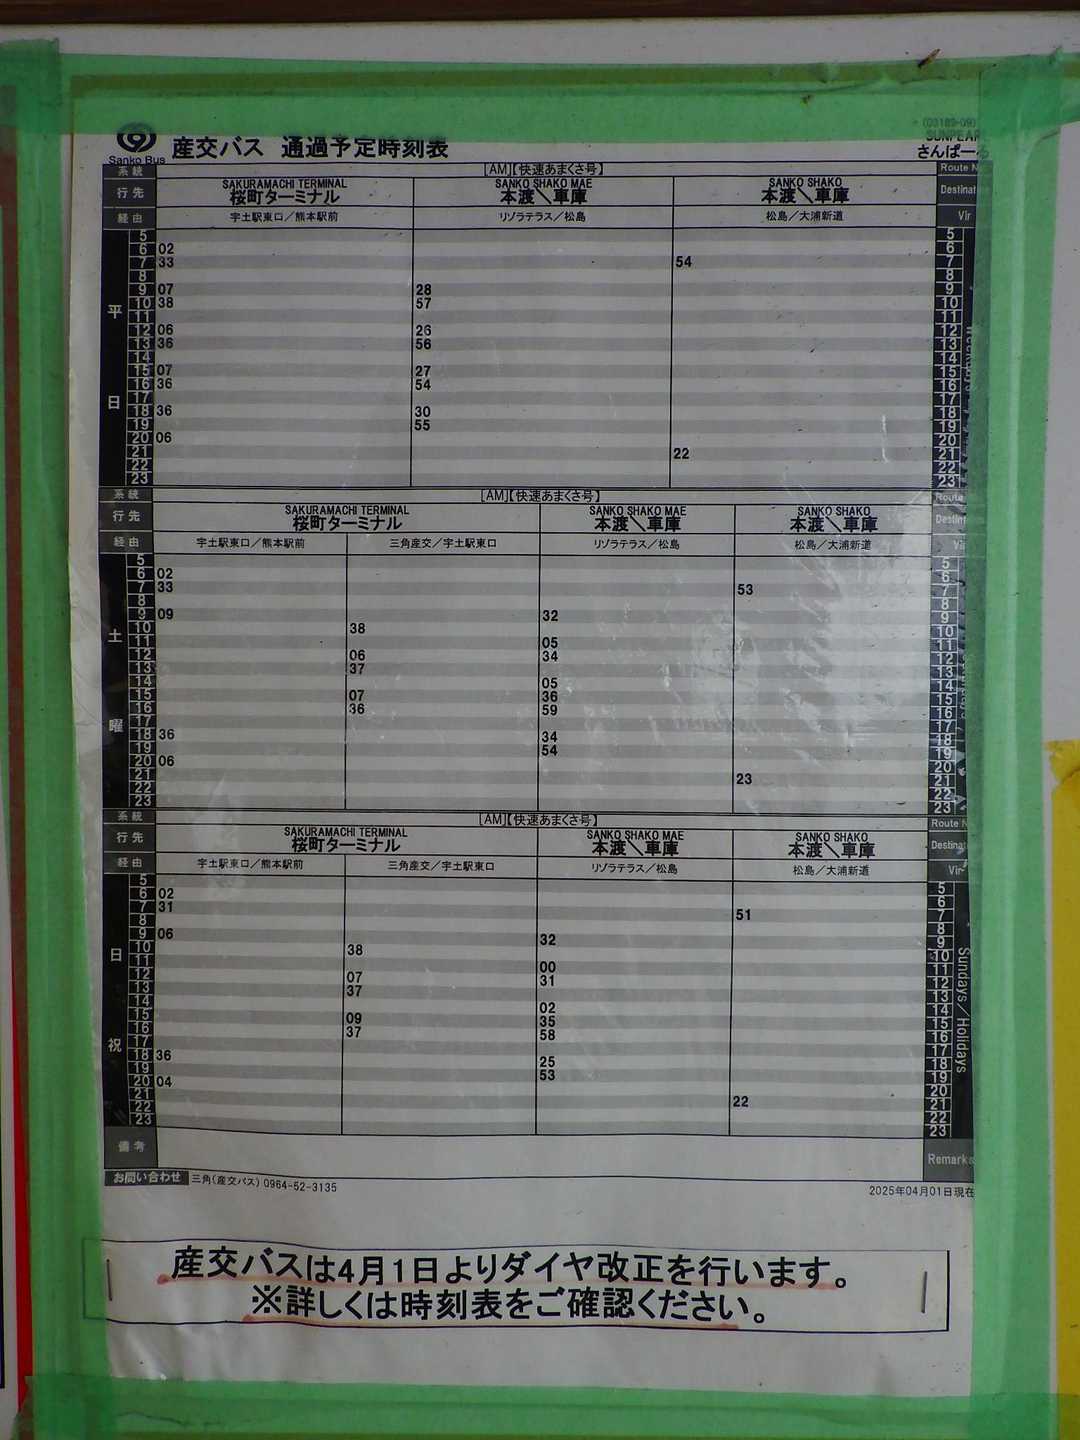 Sanko Bus
産交バス 通過予定時刻表
(03189-09)
SUNPEAR
さんぱーる
系統 [AM]【快速あまくさ号】
行先 SAKURAMACHI TERMINAL 桜町ターミナル SANKO SHAKO MAE 本渡＼車庫 SANKO SHAKO 本渡＼車庫
経由 宇土駅東口／熊本駅前 リゾラテラス／松島 松島／大浦新道
平日
5 5
6 02 6
7 33 54 7
8 8
9 07 28 9
10 38 57 10
11 11
12 06 26 12
13 36 56 13
14 14
15 07 27 15
16 36 54 16
17 17
18 36 30 18
19 55 19
20 06 20
21 22 21
22 22
23 23
系統 [AM]【快速あまくさ号】
行先 SAKURAMACHI TERMINAL 桜町ターミナル SANKO SHAKO MAE 本渡＼車庫 SANKO SHAKO 本渡＼車庫
経由 宇土駅東口／熊本駅前 三角産交／宇土駅東口 リゾラテラス／松島 松島／大浦新道
土曜
5 5
6 02 6
7 33 53 7
8 8
9 09 32 9
10 38 10
11 05 11
12 06 34 12
13 37 13
14 05 14
15 07 36 15
16 36 59 16
17 17
18 36 34 18
19 54 19
20 06 20
21 23 21
22 22
23 23
系統 [AM]【快速あまくさ号】
行先 SAKURAMACHI TERMINAL 桜町ターミナル SANKO SHAKO MAE 本渡＼車庫 SANKO SHAKO 本渡＼車庫
経由 宇土駅東口／熊本駅前 三角産交／宇土駅東口 リゾラテラス／松島 松島／大浦新道
日祝 Sundays／Holidays
5 5
6 02 6
7 31 51 7
8 8
9 06 32 9
10 38 10
11 00 11
12 07 31 12
13 37 13
14 02 14
15 09 35 15
16 37 58 16
17 17
18 36 25 18
19 53 19
20 04 20
21 22 21
22 22
23 23
備考 Remarks
お問い合わせ 三角(産交バス) 0964-52-3135
2025年04月01日現在
産交バスは4月1日よりダイヤ改正を行います。
※詳しくは時刻表をご確認ください。